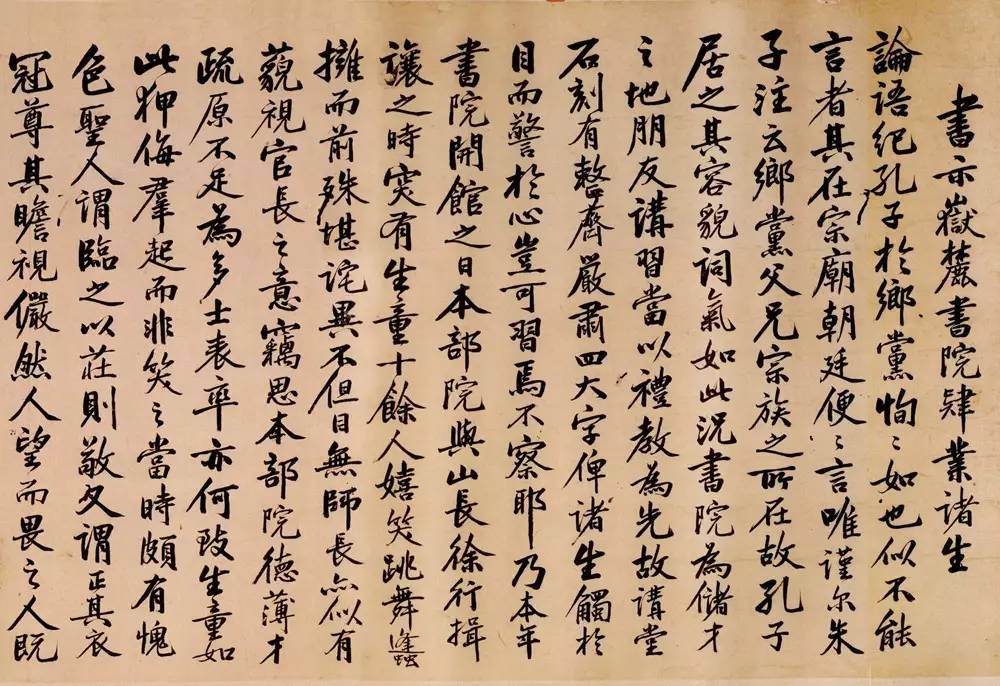 書示嶽麓書院肄業諸生
論語紀孔子於鄉黨恂〻如也似不能
言者其在宗廟朝廷便〻言唯謹尔朱
子注云鄉黨父兄宗族之所在故孔子
居之其容貌詞氣如此況書院為儲才
之地朋友講習當以禮教為先故講堂
石刻有整齊嚴肅四大字俾諸生觸於
目而警於心豈可習焉不察耶乃本年
書院開館之日本部院與山長徐行揖
讓之時突有生童十餘人嬉笑跳舞蠭
擁而前殊堪詫異不但目無師長亦似有
藐視官長之意竊思本部院德薄才
疏原不足為多士表率亦何致生童如
此狎侮羣起而非笑之當時頗有愧
色聖人謂臨之以莊則敬又謂正其衣
冠尊其瞻視儼然人望而畏之人既